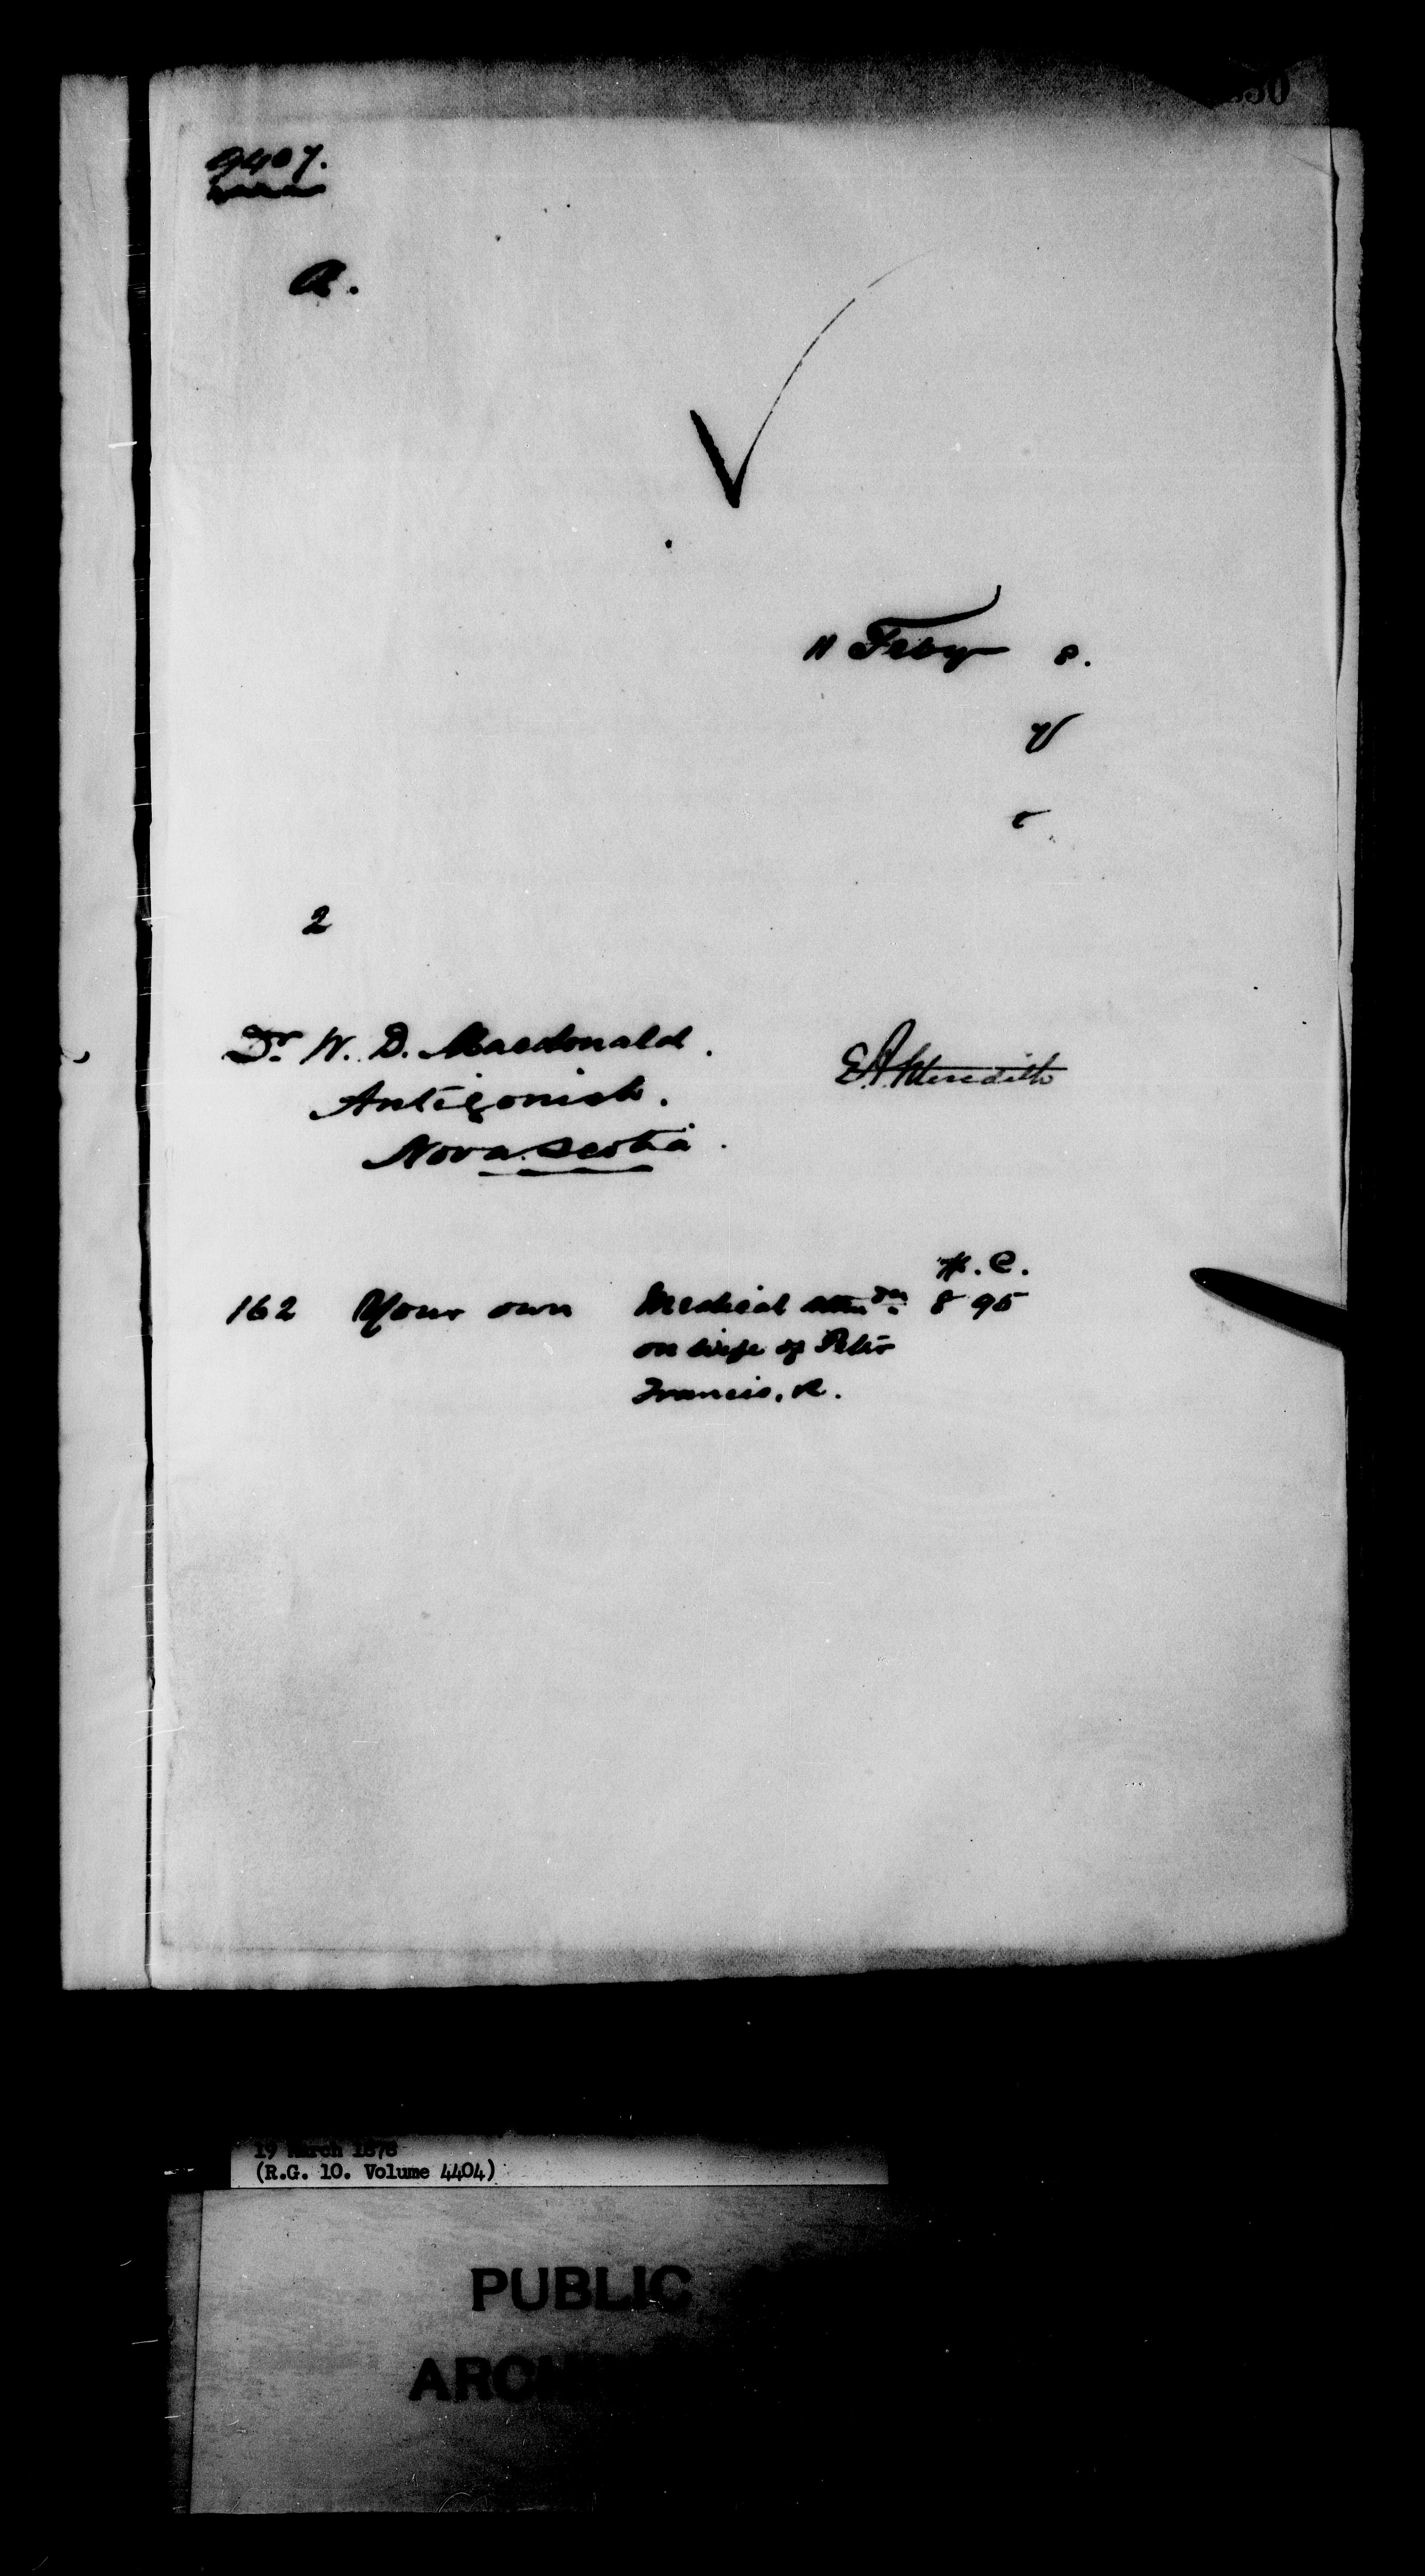 9407.
A.
11 Feby 8.
2
Dr W. D. Macdonald.
Antigonish.
Nova Scotia.
E.A. Meredith
$. C.
162 Your own Medical atten 8 95
on wife of Peter
Francis.
19 March 1878
(R.G. 10. Volume 4404)
PUBLIC